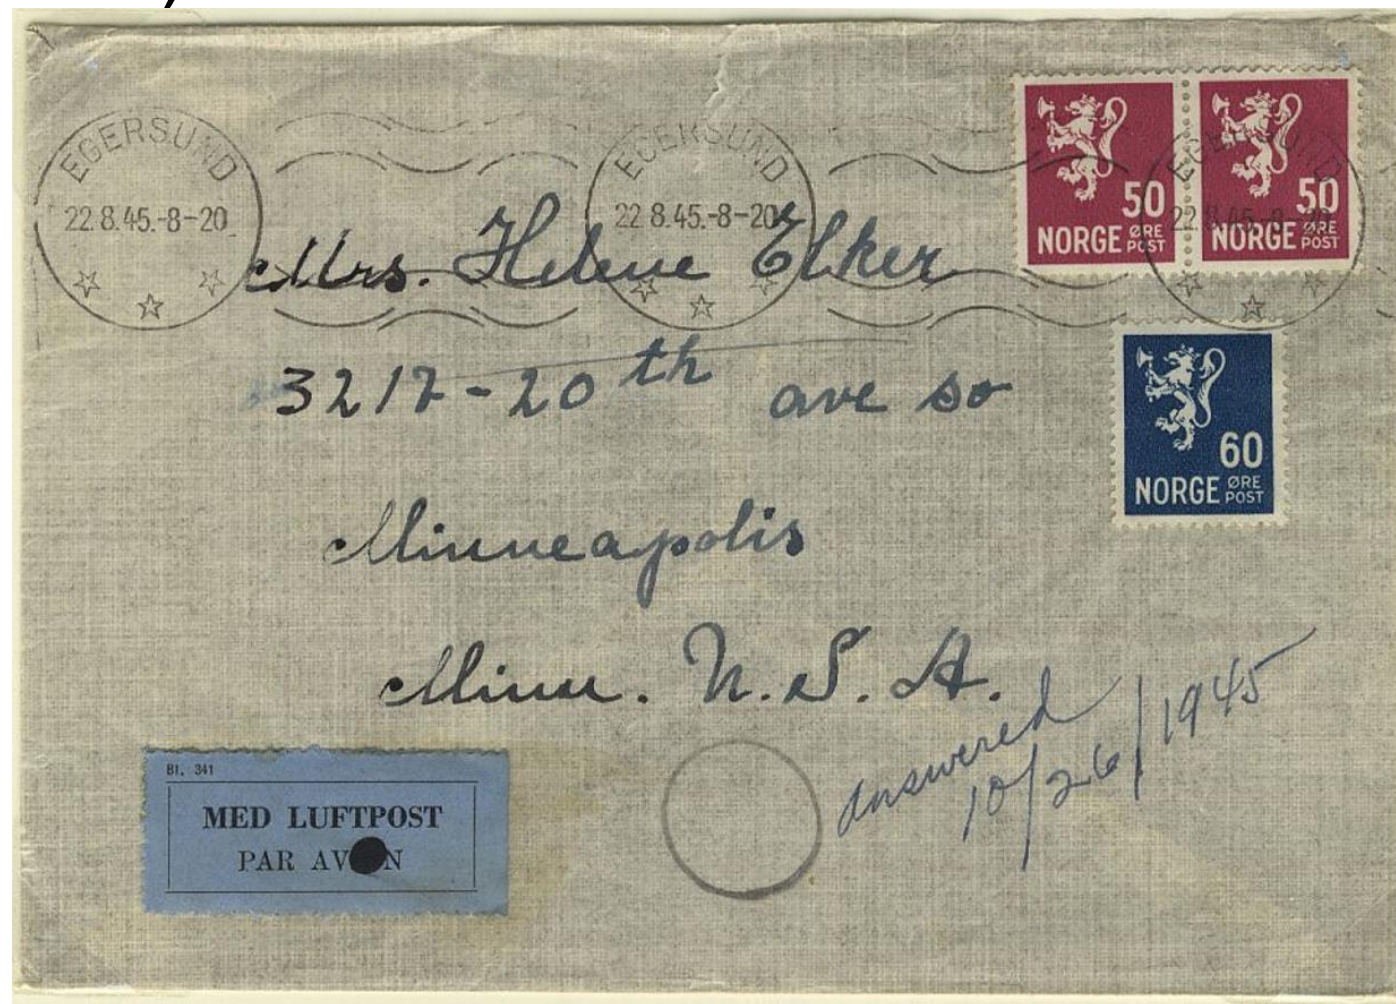 EGERSUND
22.8.45.-8-20
EGERSUND
22.8.45.-8-20
EGERSUND
22.8.45.-8-20
50
NORGE ØRE POST
50
NORGE ØRE POST
60
NORGE ØRE POST
Mrs. Helene Elker
3217-20th ave so
Minneapolis
Minn. U.S.A.
answered
10/26/1945
Bl. 341
MED LUFTPOST
PAR AVON